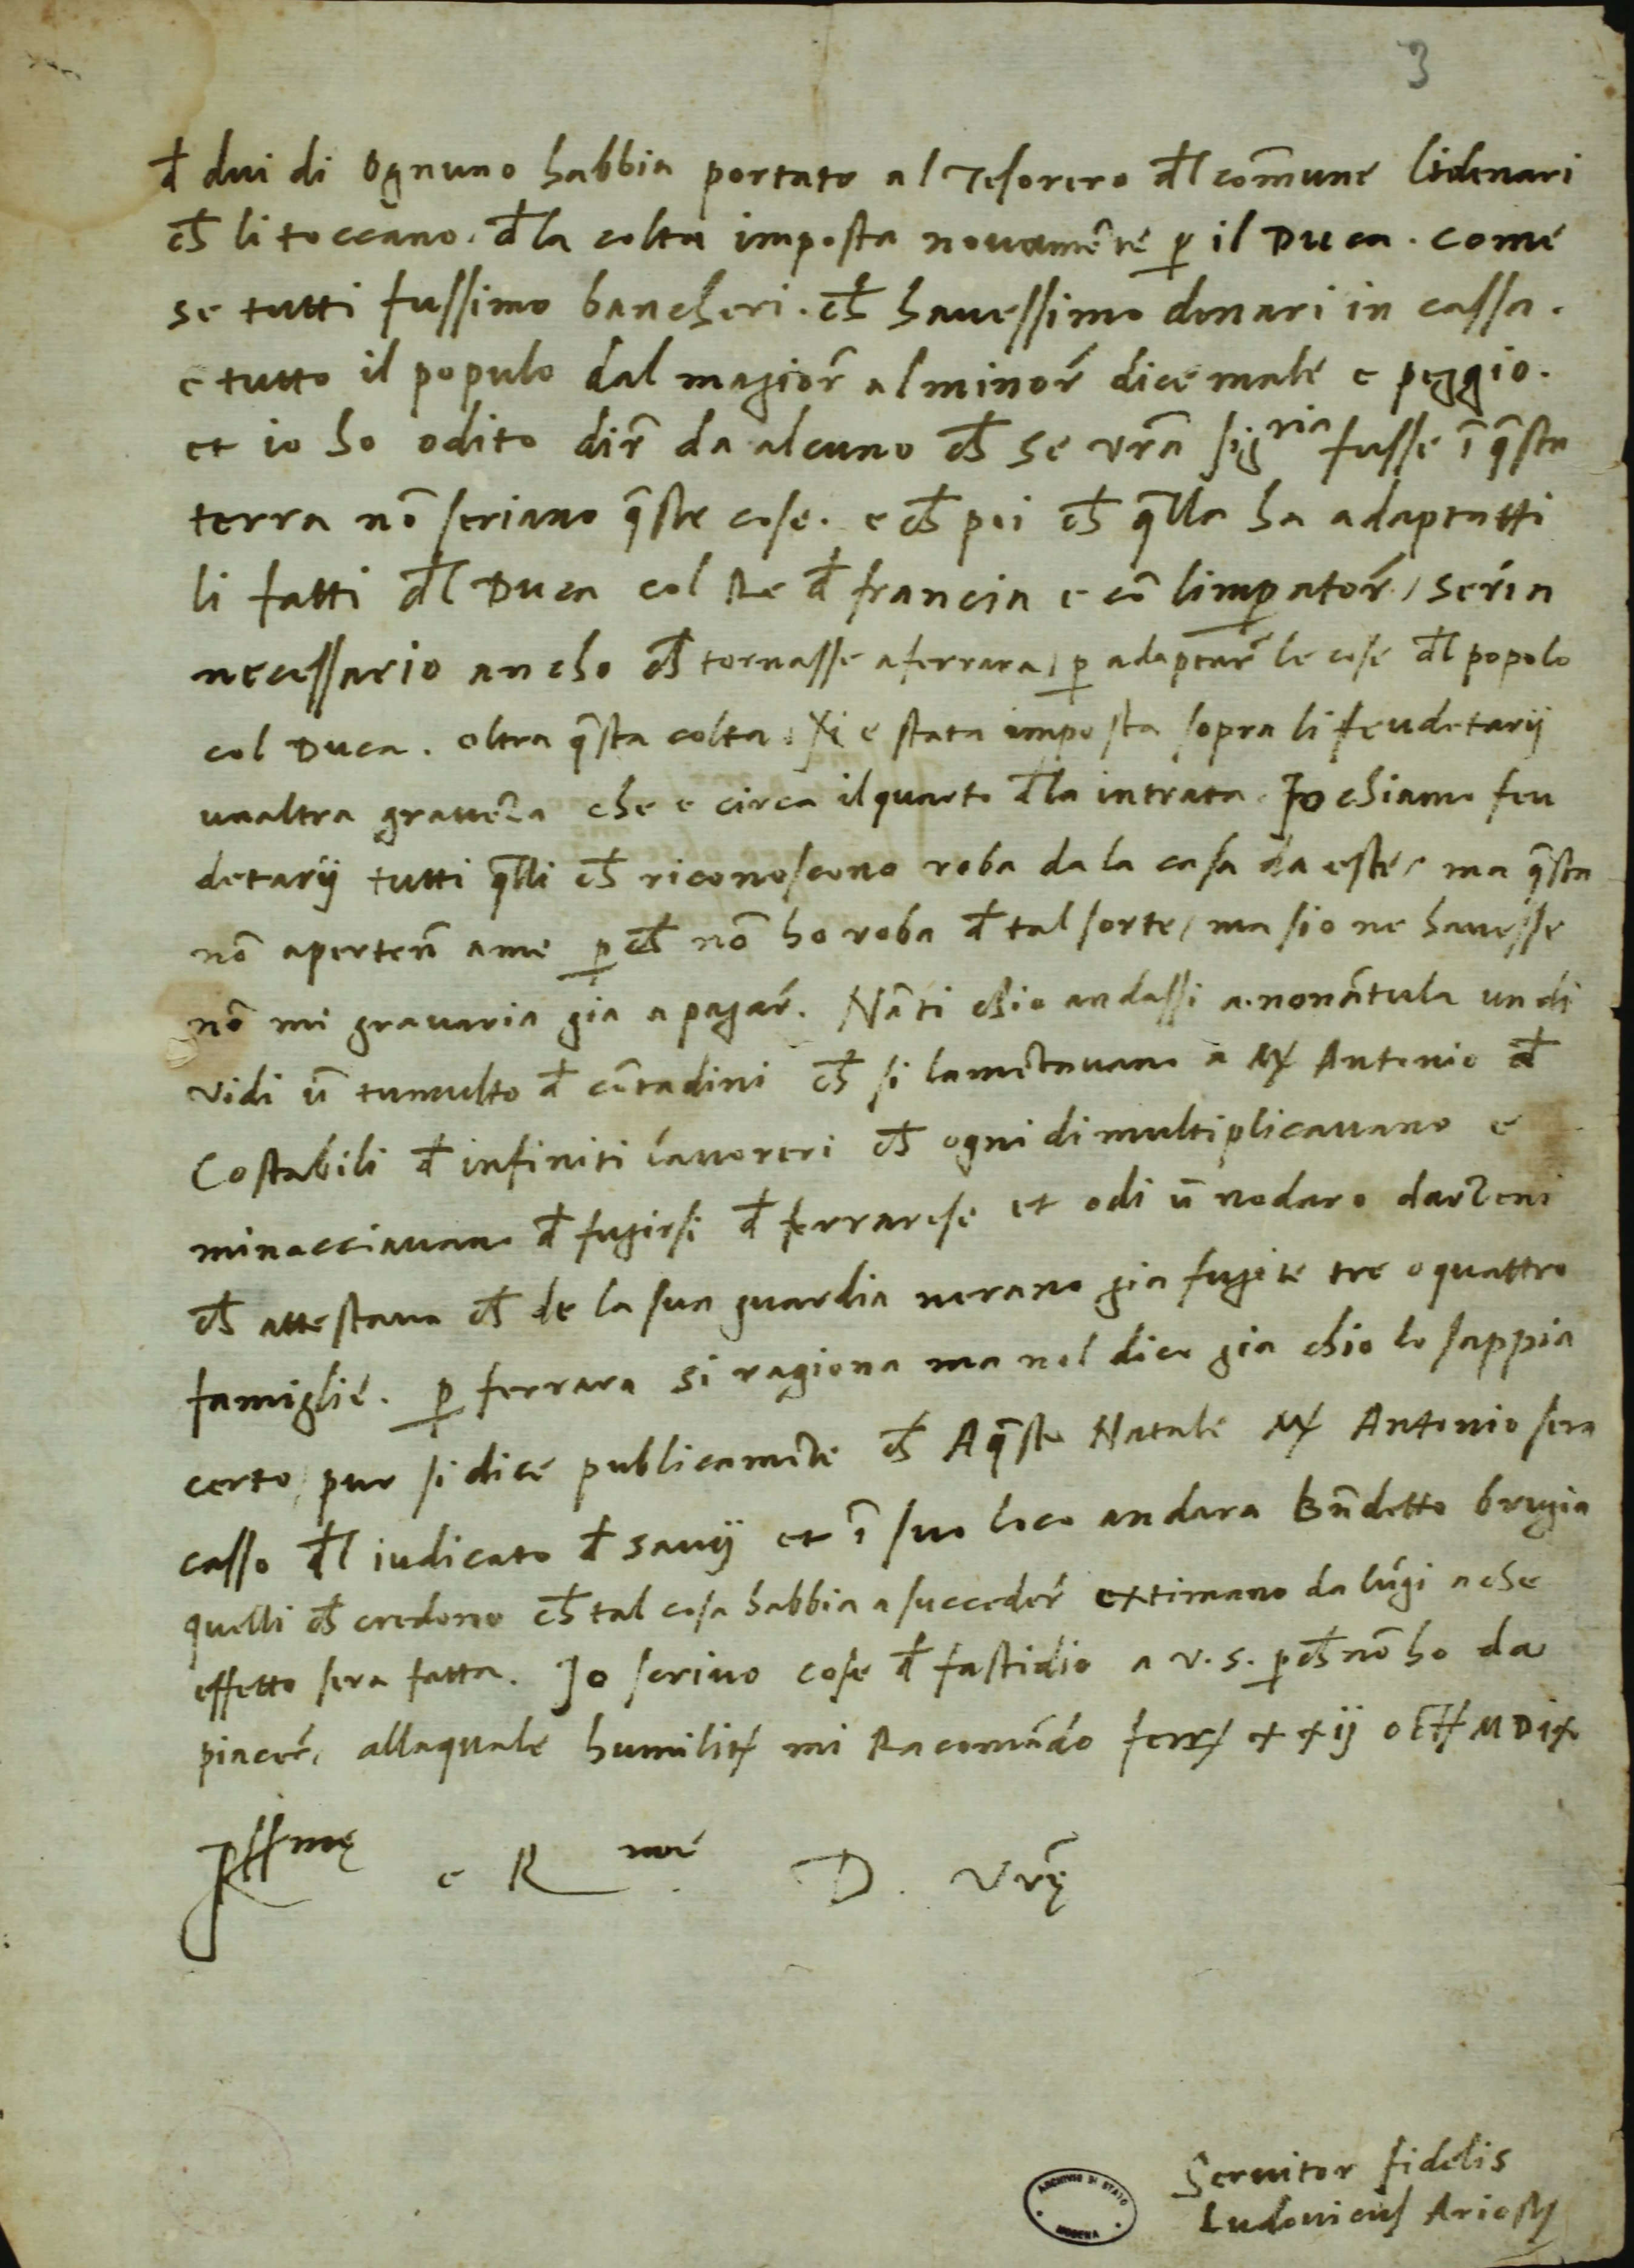 3
đ dui di Ognuno habbia portato al Tesorero đl com̄une li denari
ch̄ li toccano. đ la colta imposta novamēte ꝑ il Duca. come
se tutti fussimo bancheri. ch̄ havessimo denari in cassa.
e tutto il populo dal magior̄ al minor̄ dice male e peggio.
et io ho odito dir̄ da alcuno ch̄ se vr̄a sigria fusse ī q̄sta
terra nō seriano q̄ste cose. e ch̄ poi ch̄ q̄lla ha adaptatti
li fatti đl Duca col Re đ francia e cō limꝑator̄, seria
necessario ancho ch̄ tornasse a ferrara, ꝑ adaptar̄ le cose đl popolo
col Duca. oltra q̄sta colta. Xi e stata imposta sopra li feudetarij
unaltra graveza che e circa il quarto đ la intrata. Io chiamo feu
detarij tutti q̄lli ch̄ riconoscono roba da la casa da este, ma q̄sta
nō aperten̄ a me ꝑch̄ nō ho roba đ tal sorte, ma sio ne havesse
nō mi gravaria gia a pagar̄. Nāti chio andassi a nonātula un di
vidi ū tumulto đ cōtadini ch̄ si lamētavano a M Antonio đ
Costabili đ infiniti lavoreri ch̄ ogni di multiplicavano e
minacciavano đ fugirsi đ ferrarese et odi ū nodaro darzeni
ch̄ attestava ch̄ de la sua guardia nerano gia fugite tre o quattro
famiglie. ꝑ ferrara si ragiona ma nol dico gia chio lo sappia
certo, pur si dice publicamēte ch̄ A q̄sto Natale M Antonio sera
casso đl iudicato đ savij et ī suo loco andara Bn̄detto brugia
quelli ch̄ credono ch̄ tal cosa habbia a succeder̄ extimano da lūgi a che
effetto sera fatta. Io scrivo cose đ fastidio a v. s. ꝑch̄ nō ho da
piacer̄, alla quale humilit mi Racomādo ferr xxij oct MDix
Ill me e R me D. Vrę
Servitor fidelis
Ludovicus Ariostus
ARCHIVIO DI STATO
MODENA